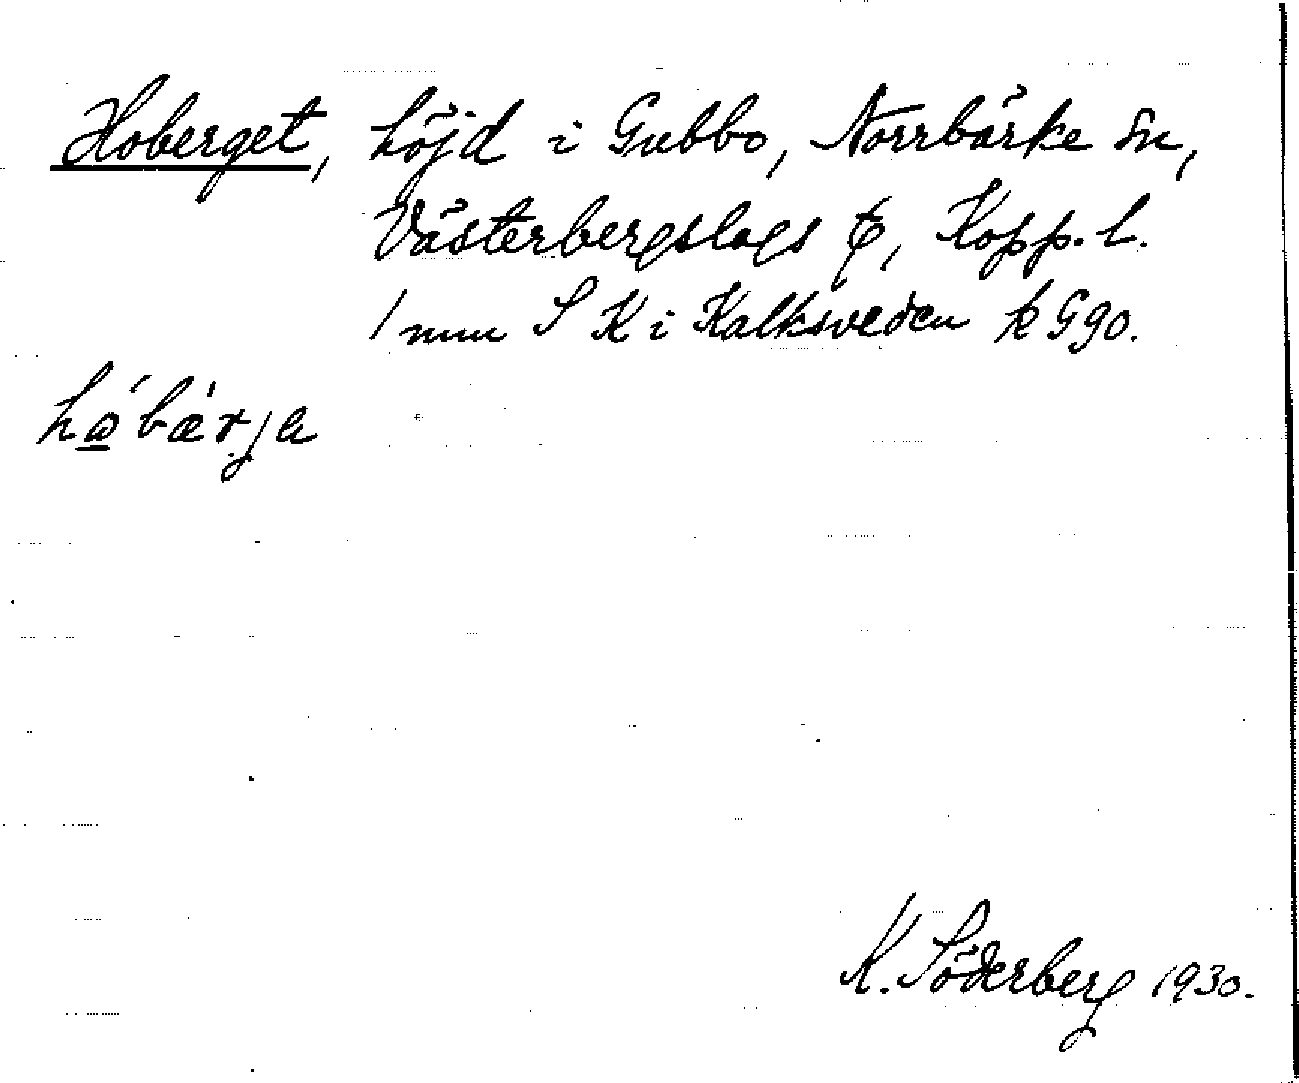 Hoberget, höjd i Gubbo, Norrbärke sn,
Västerbergslags tg, Kopp. l.
1 mm S K i Kalksveden k G90.
hǻbæ̀rja
K. Söderberg 1930.